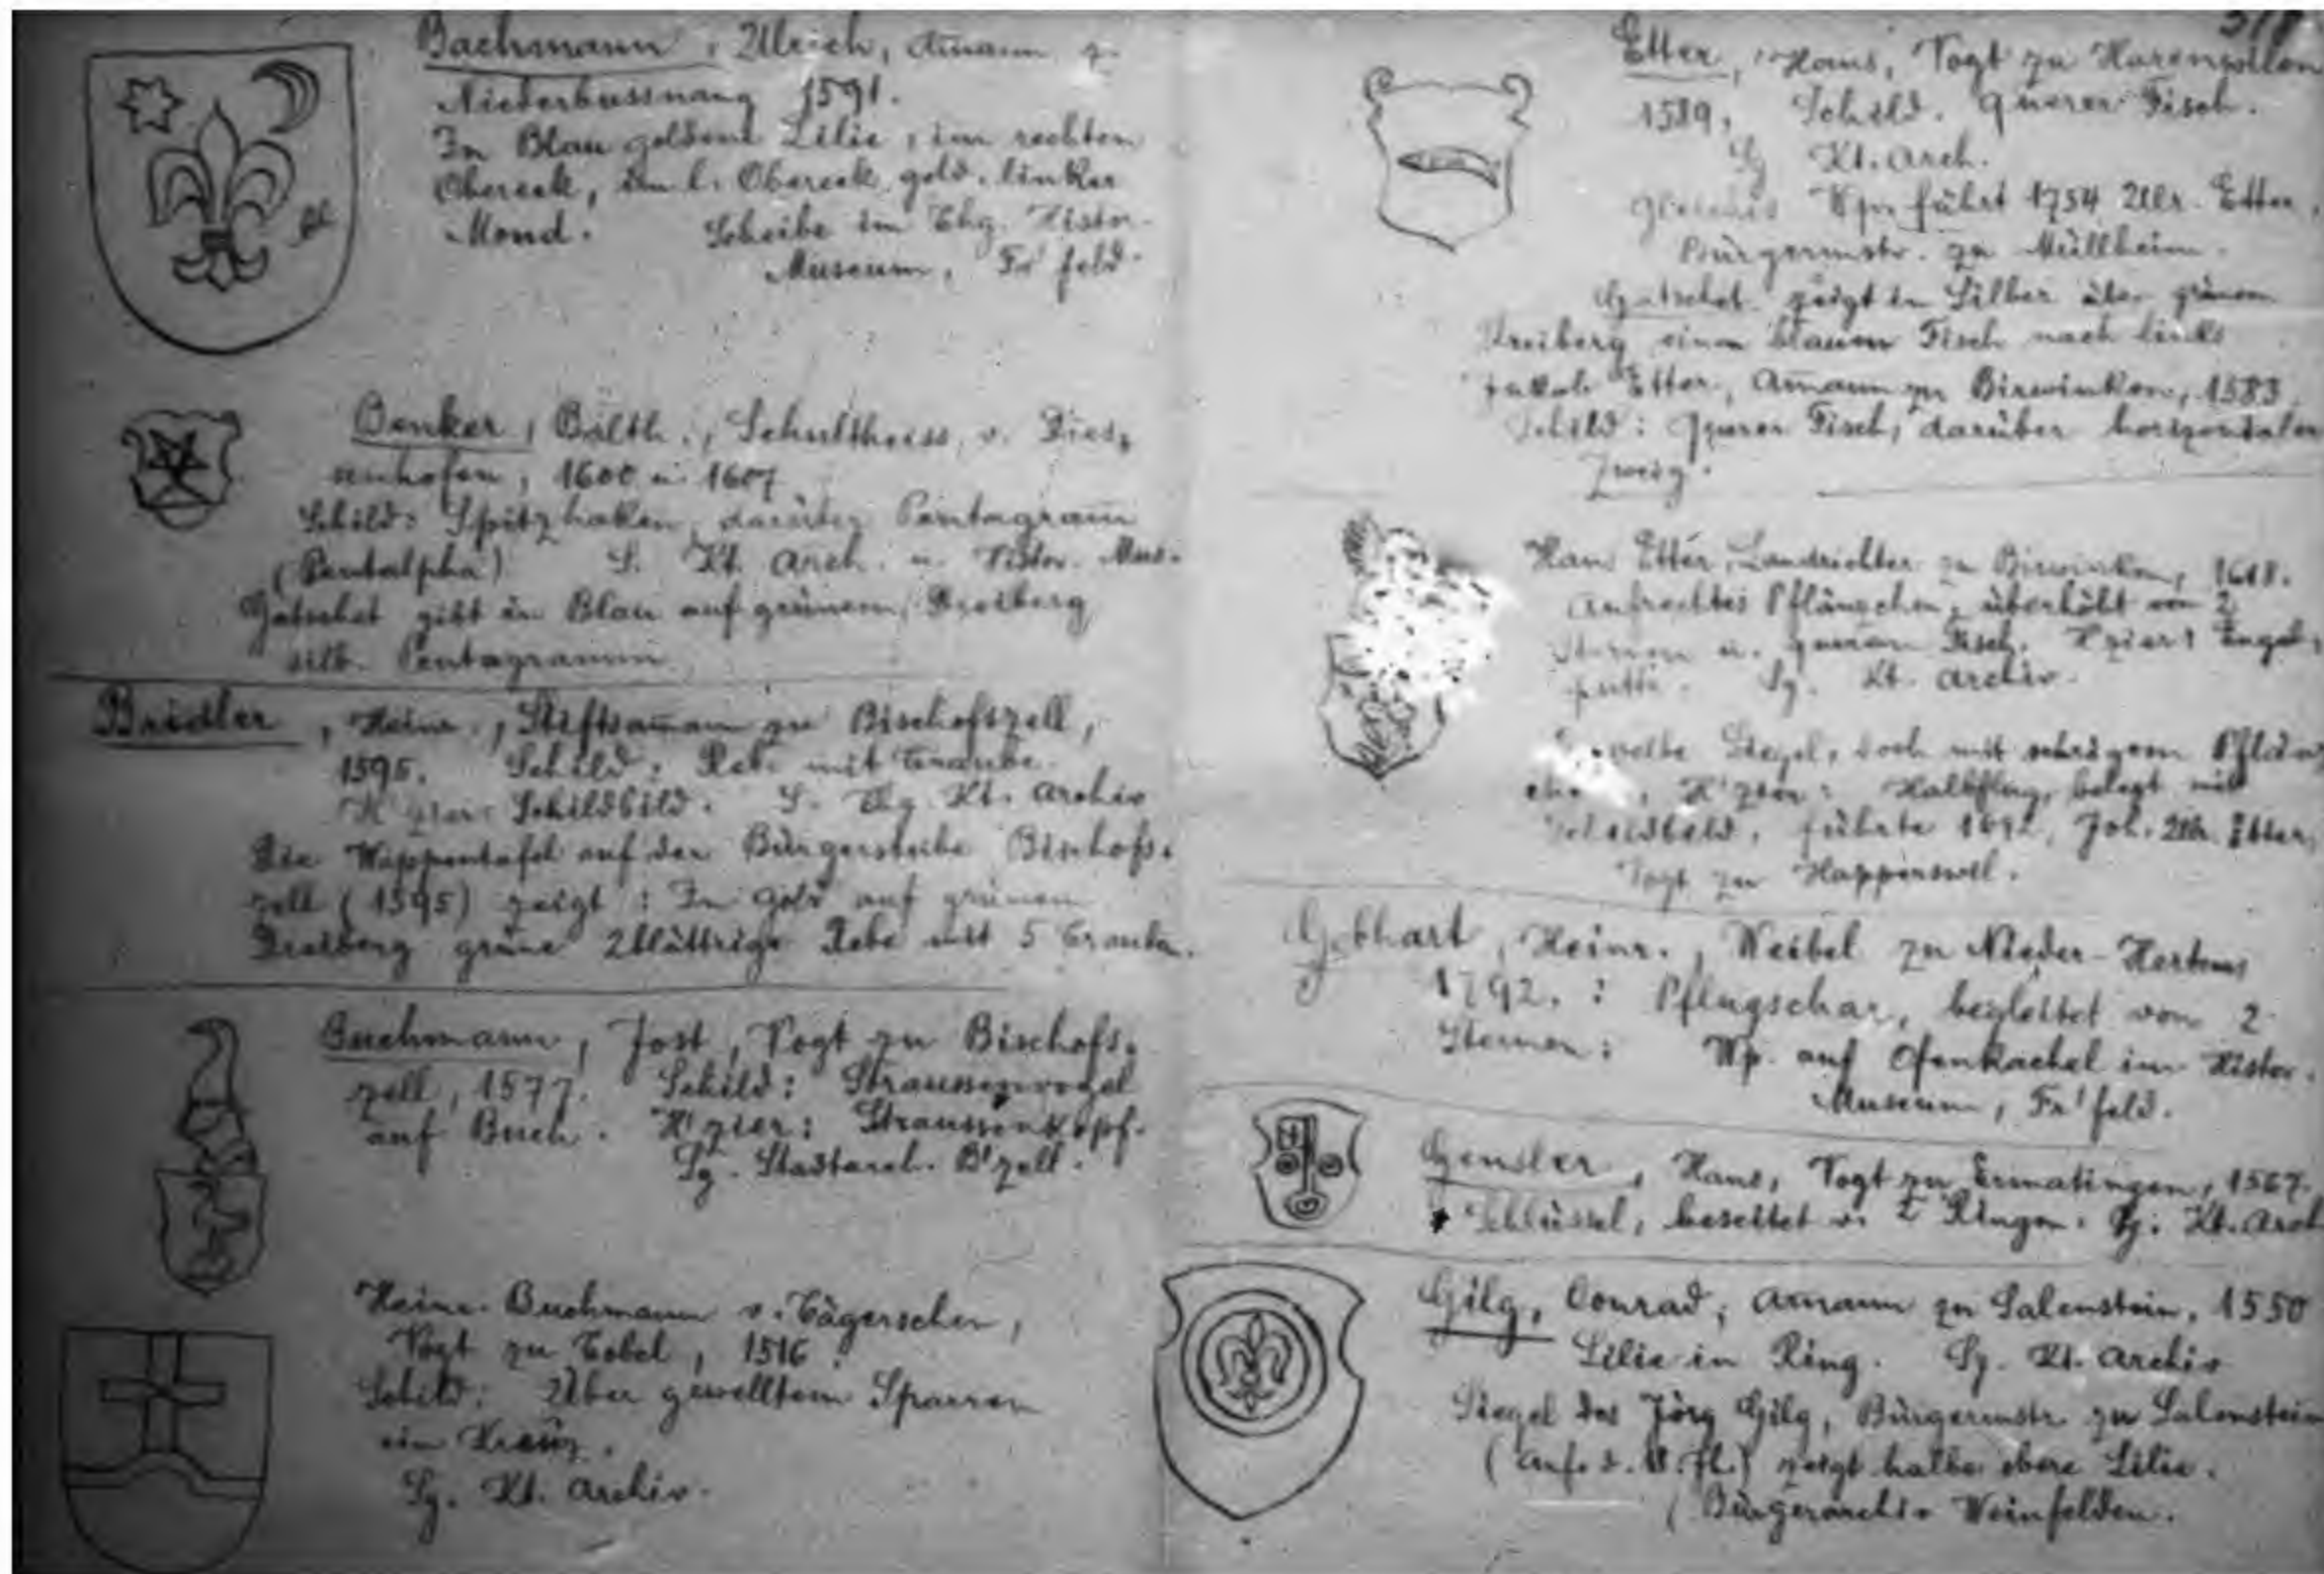 Bachmann, Ulrich, Amann z.
Niederbussnang 1591.
In Blau goldene Lilie, im rechten
Obereck, im l. Obereck gold. linker
Mond. Scheibe im Thg. Histor.
Museum, Fr'feld.
Benker, Balth., Schultheiss v. Dies-
senhofen, 1600 u. 1607
Schild: Spitzhaken, darüber Pentagram̄
(Pentalpha) S. Kt. Arch. u. Histor. Mus.
Gatschet gibt in Blau auf grünem Dreiberg
silb. Pentagramm
Bridler, Heinr., Stiftsam̄ann zu Bischofszell,
1595. Schild: Rebe mit Traube.
H'zier: Schildbild. S. Thg. Kt. Archiv
Die Wappentafel auf der Bürgerscheibe Bischofs-
zell (1595) zeigt: In Gold auf grünem
Dreiberg grüne 2blättrige Rebe mit 5 Trauben.
Buchmann, Jost, Vogt zu Bischofs-
zell, 1577. Schild: Straussenvogel
auf Buch. H'zier: Straussenkopf.
Sg. Stadtarch. B'zell.
Heinr. Buchmann v. Tägerschen,
Vogt zu Tobel, 1516.
Schild: Über gewelltem Sparren
ein Kreuz.
Sg. Kt. Archiv.
Etter, Hans, Vogt zu
1589, Schild. Querer Fisch.
Sg Kt. Arch.
Gleiches Wpn führt 1754 Ulr. Etter,
Bürgermstr. zu Müllheim.
Gatschet zeigt in Silber über grünem
Dreiberg einen blauen Fisch nach links
Jakob Etter, Am̄ann zu Birwinken, 1583.
Schild: Querer Fisch, darüber horizontaler
Zweig.
Hans Etter, Landrichter zu Birwinken, 1618.
Aufrechtes Pflänzchen, überhöht von 2
Sternen u. querem Fisch. H'zier: Engel-
putti. Sg. Kt. Archiv.
Siegel, doch mit schrägem
H'zier: Halbflug, belegt mit
Schildbild, führte Joh. Ulr. Etter,
Vogt zu Happerswil.
Gebhart, Heinr., Weibel zu Nieder-Herten
1792. : Pflugschar, begleitet von 2
Sternen: Wp. auf Ofenkachel im Histor.
Museum, Fr'feld.
Gensler, Hans, Vogt zu Ermatingen, 1567.
Schlüssel, beseitet v. 2 Ringen. Sg. Kt. Arch
Gilg, Conrad, Am̄ann zu Salenstein, 1550
Lilie in Ring. Sg. Kt. Archiv
Siegel des Jörg Gilg, Bürgermstr. zu Salenstein
zeigt halbe obere Lilie.
(Bürgerarchiv Weinfelden.